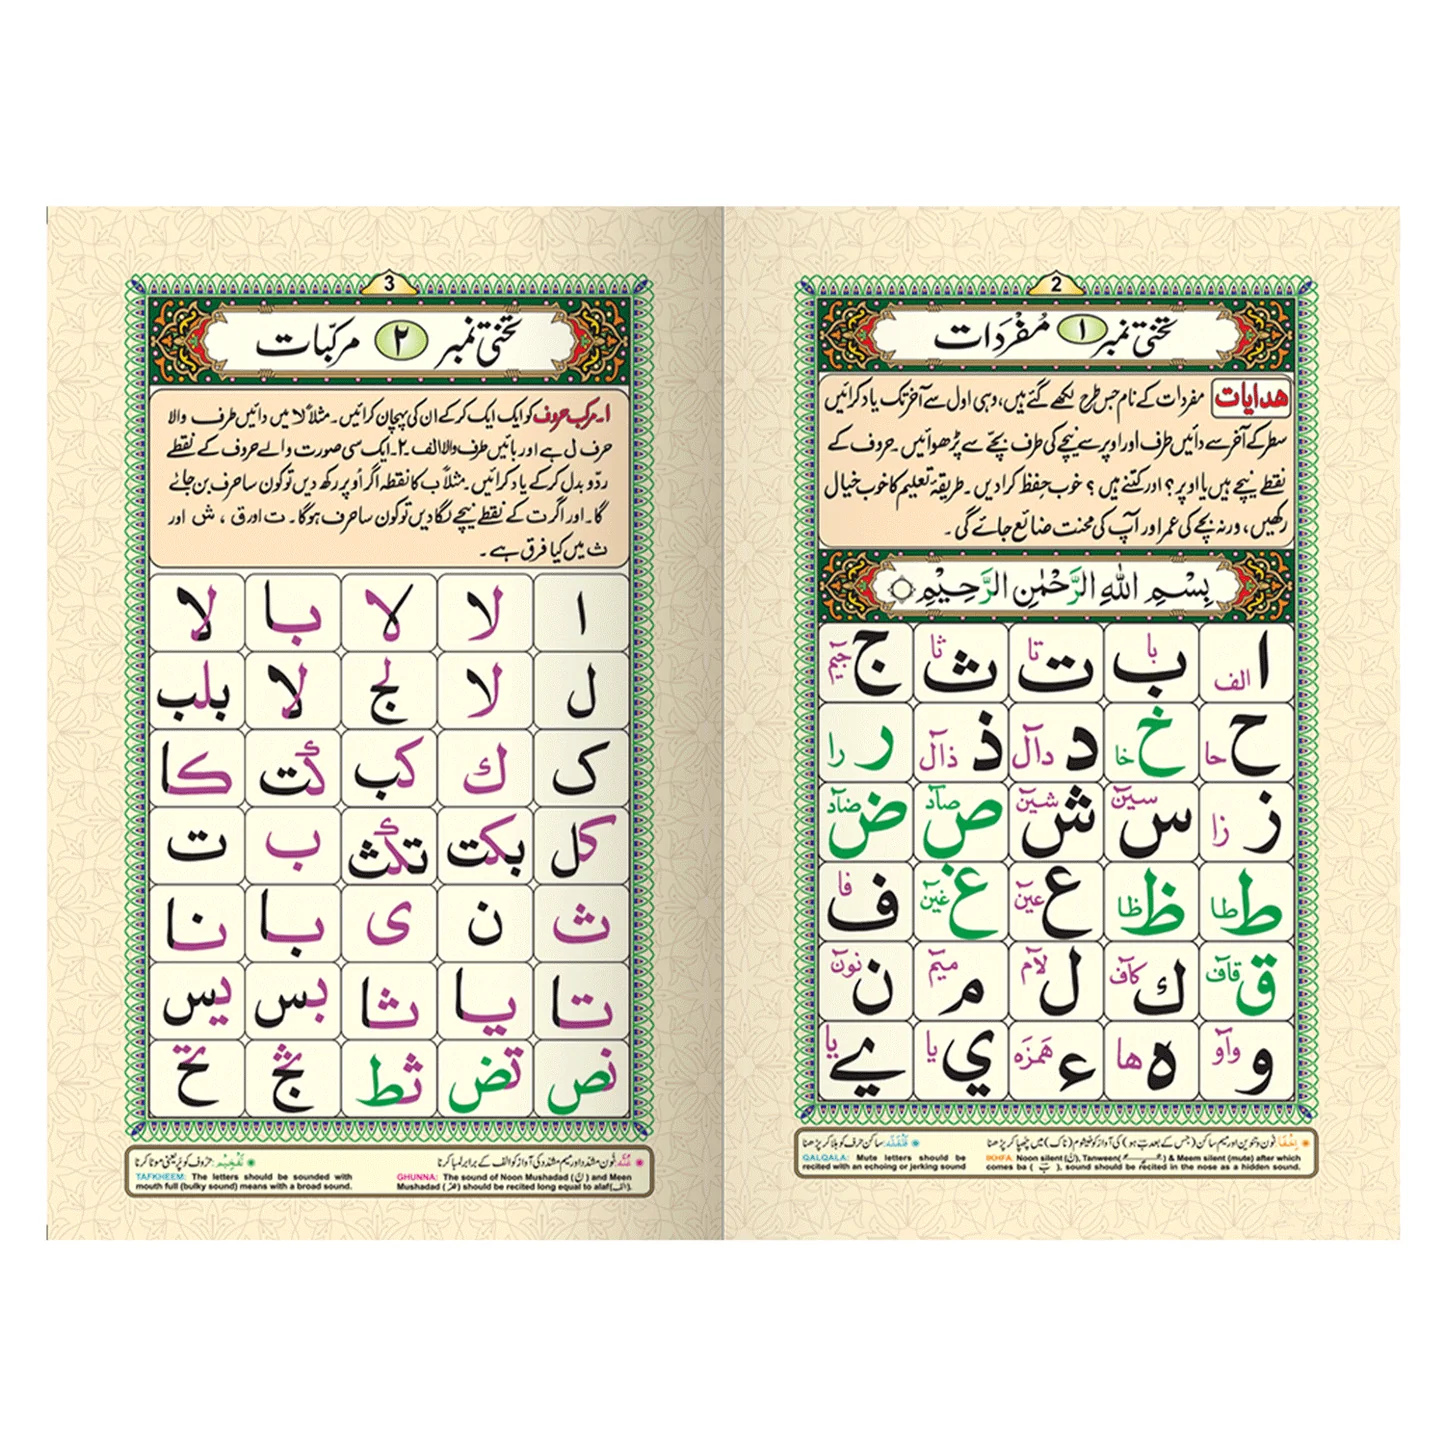 2
تختی نمبر ۱ مُفْرَدَات
ھدایات مفردات کے نام جس طرح لکھے گئے ہیں، وہی اول سے آخر تک یاد کرائیں
سطر کے آخر سے دائیں طرف اور اوپر سے نیچے کی طرف بچّے سے پڑھوائیں۔ حروف کے
نقطے نیچے ہیں یا اوپر؟ اور کتنے ہیں؟ خوب حِفظ کرا دیں۔ طریقۂ تعلیم کا خوب خیال
رکھیں، ورنہ بچے کی عمر اور آپ کی محنت ضائع جائے گی۔
بِسْمِ اللهِ الرَّحْمٰنِ الرَّحِيْمِ
ا الف ب با ت تا ث ثا ج جیم
ح حا خ خا د دال ذ ذال ر را
ز زا س سین ش شین ص صاد ض ضاد
ط طا ظ ظا ع عین غ غین ف فا
ق قاف ك کاف ل لام م میم ن نون
و واو ه ھا ء ھَمزَہ ي یا ے یا
اِخْفَا: نون و تنوین اور میم ساکن (جس کے بعد بَ ہو) کی آواز کو خیشوم (ناک) میں چھپا کر پڑھنا
قَلْقَلَه: ساکن حرف کو ہلا کر پڑھنا
IKHFA: Noon silent (نْ), Tanween( ـًـٍـٌ ) & Meem silent (mute) after which
comes ba ( بَ ), sound should be recited in the nose as a hidden sound.
QALQALA: Mute letters should be
recited with an echoing or jerking sound
3
تختی نمبر ۲ مرکبّات
۱۔ مرکب حروف کو ایک ایک کر کے ان کی پہچان کرائیں۔ مثلاً لا میں دائیں طرف والا
حرف ل ہے اور بائیں طرف والا الف۔ ۲۔ ایک سی صورت والے حروف کے نقطے
ردّ و بدل کر کے یاد کرائیں۔ مثلاً ب کا نقطہ اگر اُوپر رکھ دیں تو کون سا حرف بن جائے
گا۔ اور اگر ت کے نقطے نیچے لگا دیں تو کون سا حرف ہوگا۔ ت اور ق ، ش اور
ث میں کیا فرق ہے۔
ا لا لا با لا
ل لا لج لا بلب
ک ك کب کت کا
کل بکت تکث ب ت
ث ن ی با نا
تا یا ثا بس یس
نص تض ثط بج تح
غُنَّه: نون مشدد اور میم مشدد کی آواز کو الف کے برابر لمبا کرنا
تَفْخِيْم: حروف کو پُر یعنی موٹا کرنا
GHUNNA: The sound of Noon Mushadad (نّ) and Meen
Mushadad (مّ) should be recited long equal to alaf(الف).
TAFKHEEM: The letters should be sounded with
mouth full (bulky sound) means with a broad sound.